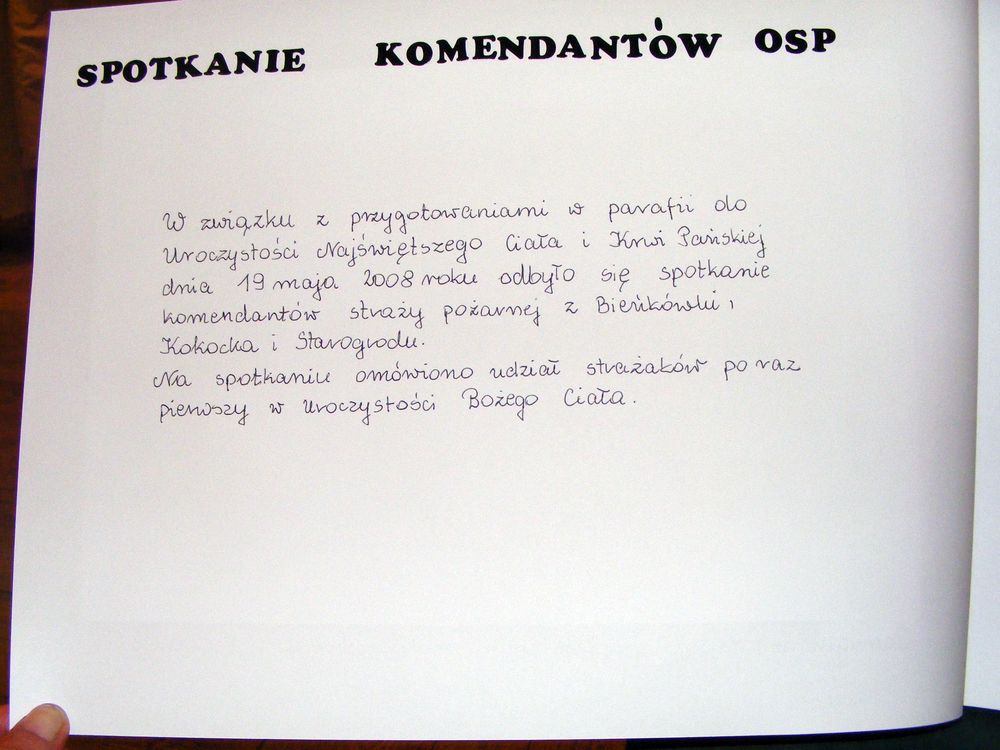 SPOTKANIE KOMENDANTÓW OSP
W związku z przygotowaniami w parafii do
Uroczystości Najświętszego Ciała i Krwi Pańskiej
dnia 19 maja 2008 roku odbyło się spotkanie
komendantów straży pożarnej z Bieńkówki,
Kokocka i Starogrodu.
Na spotkaniu omówiono udział strażaków po raz
pierwszy w Uroczystości Bożego Ciała.